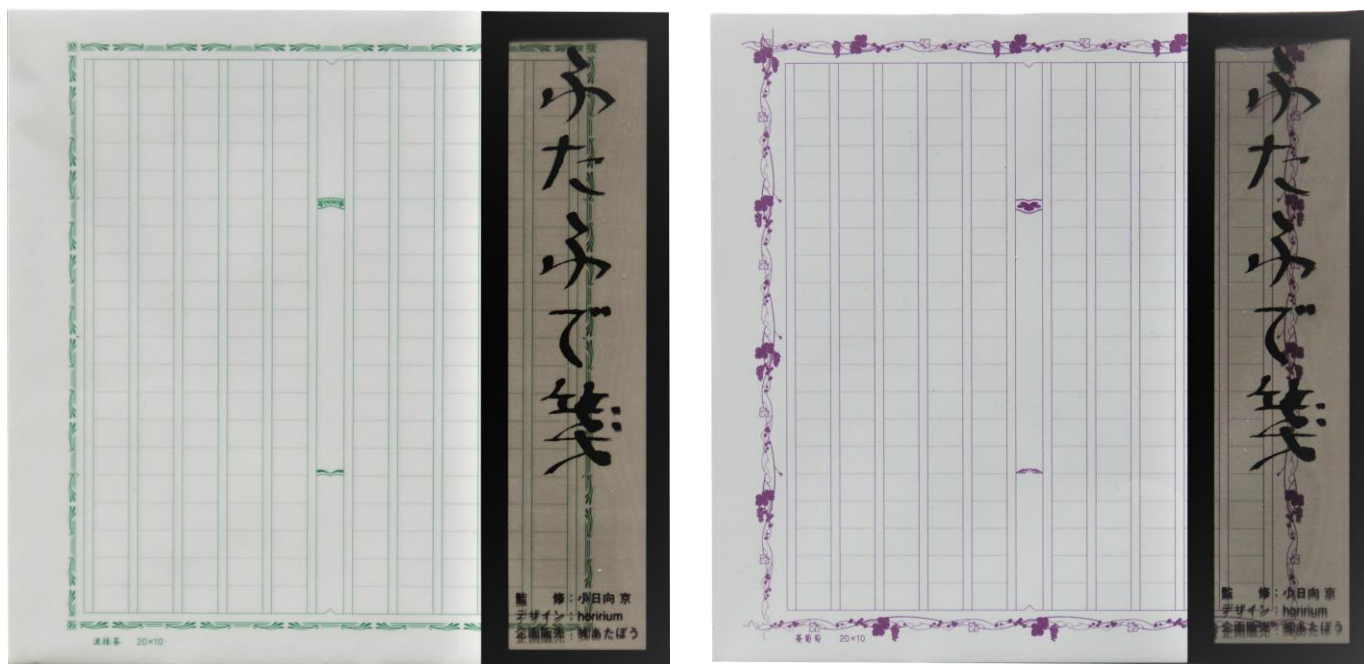 ふたふで箋
監修：小日向 京
デザイン：horirium
企画販売：㈱あたぼう
波抹茶 20×10
ふたふで箋
監修：小日向 京
デザイン：horirium
企画販売：㈱あたぼう
蔓葡萄 20×10